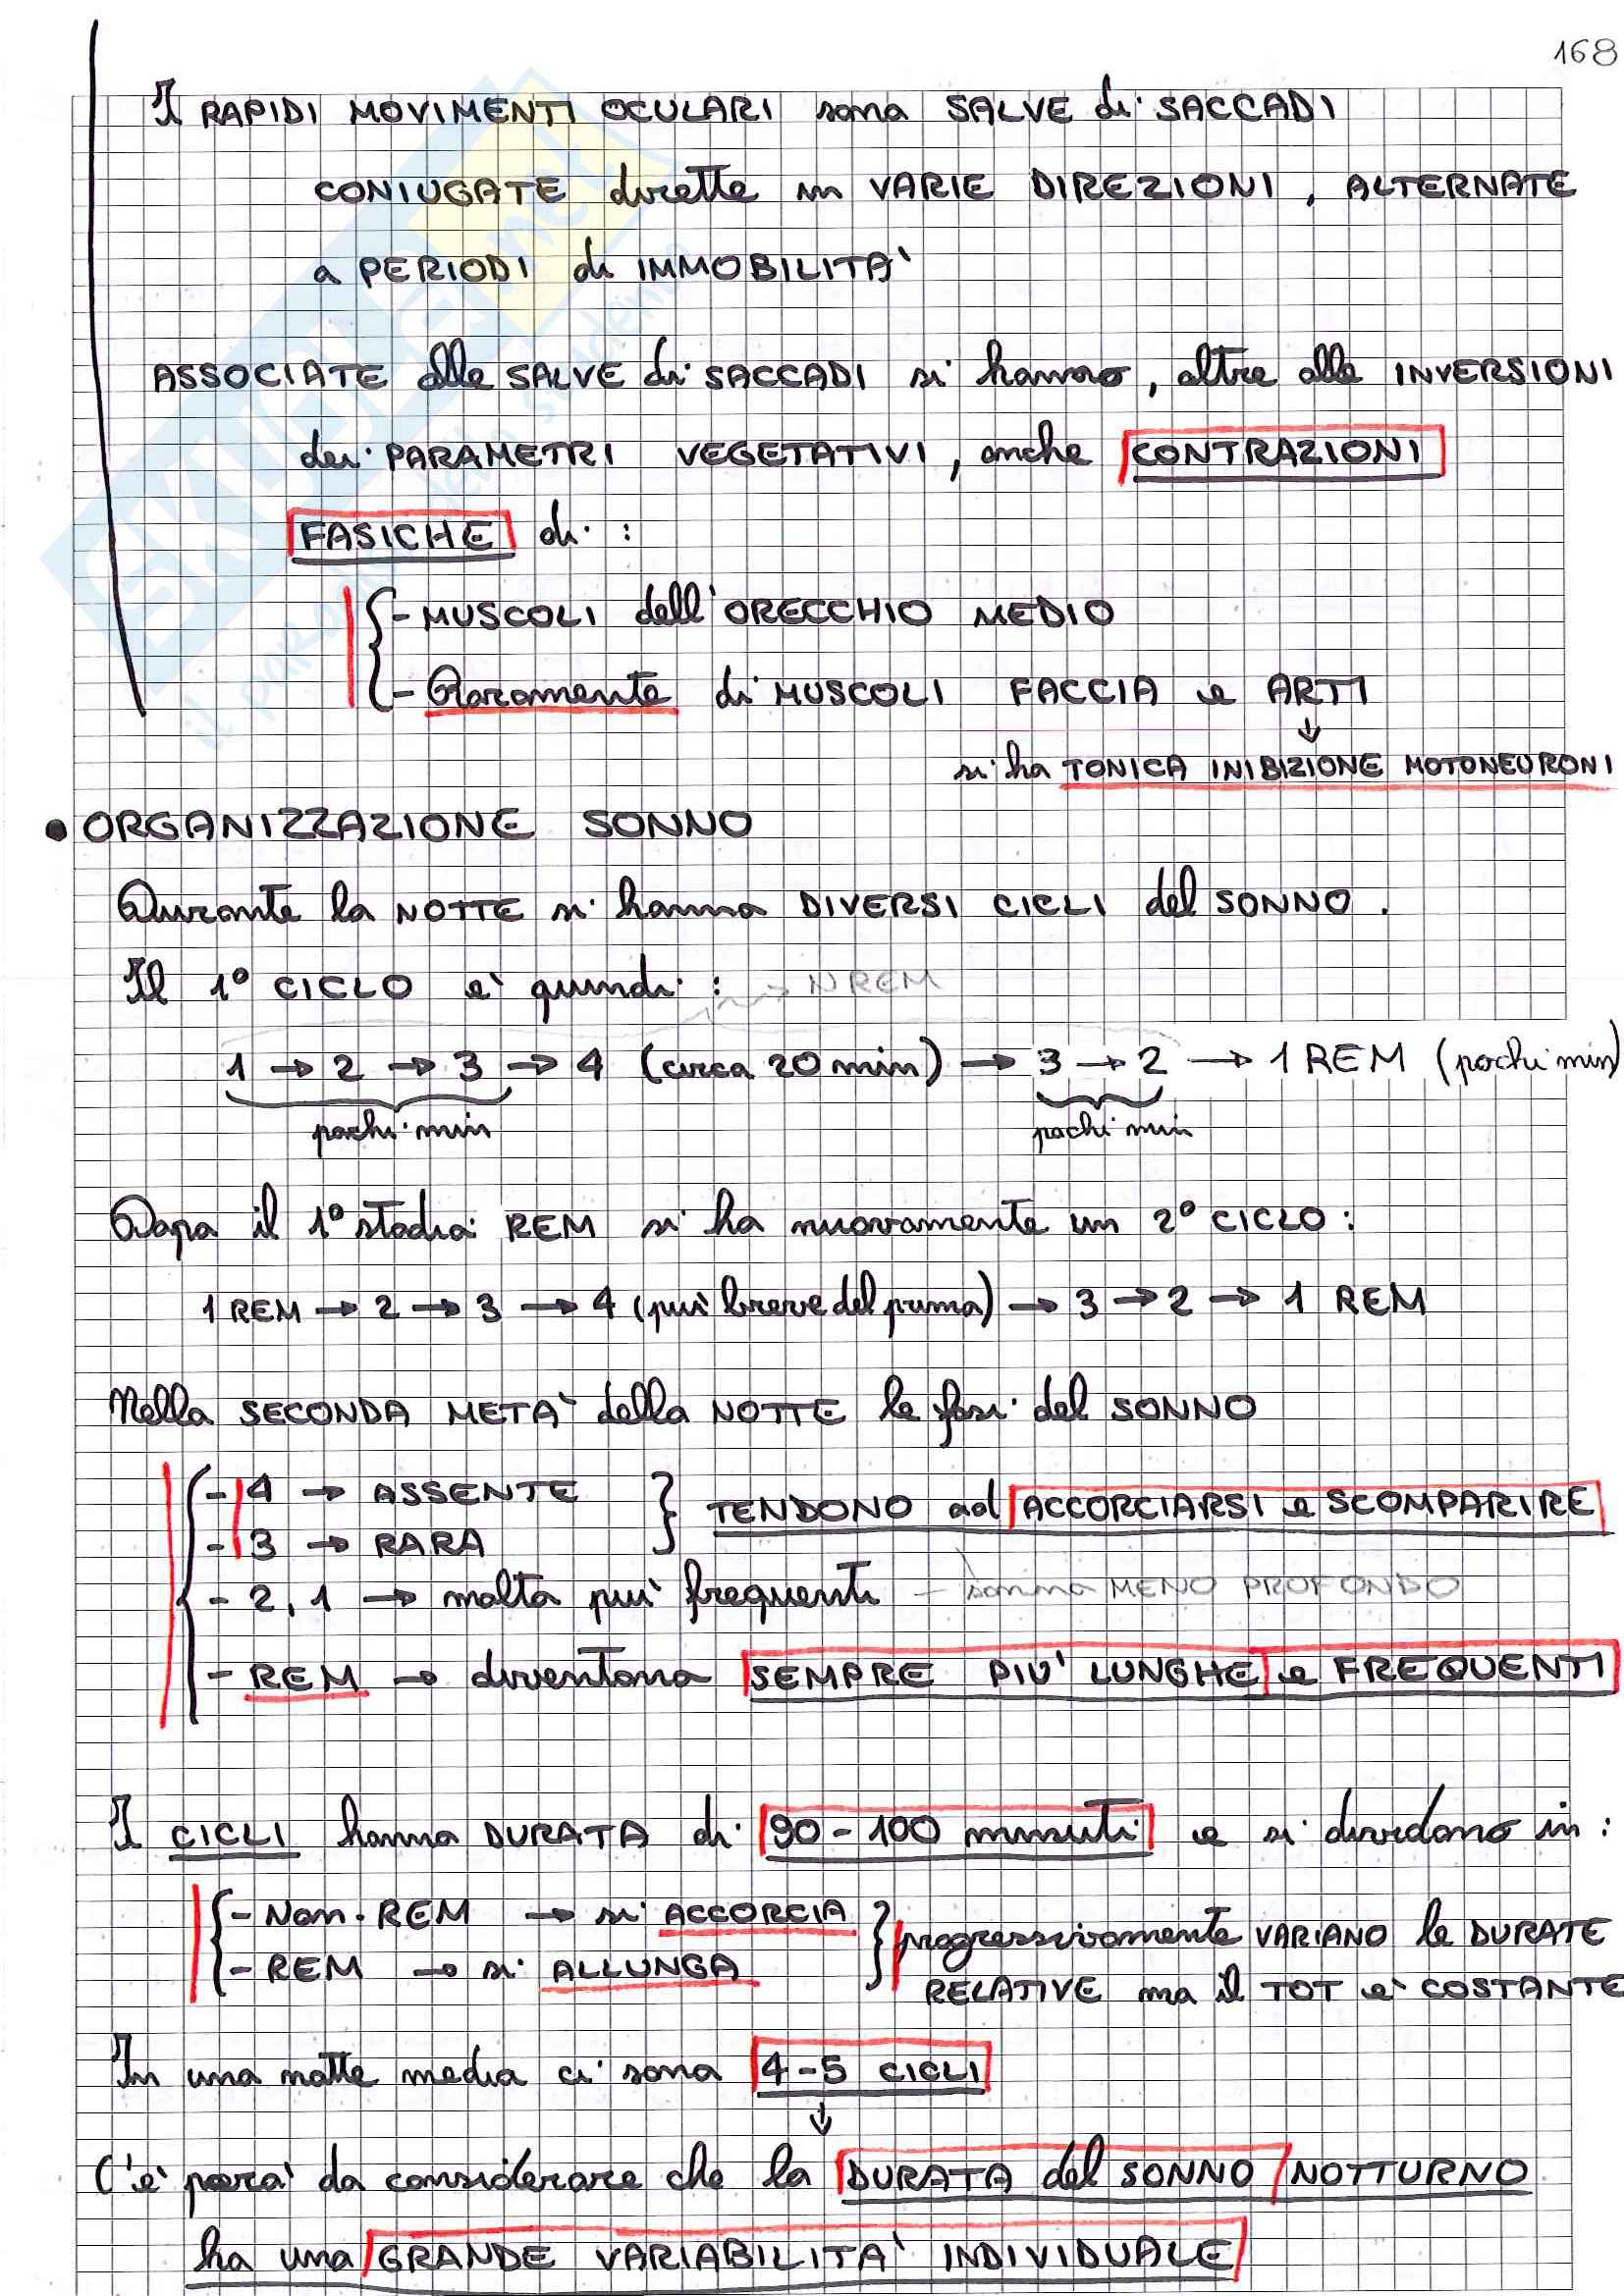 168
I RAPIDI MOVIMENTI OCULARI sono SALVE di SACCADI
CONIUGATE dirette in VARIE DIREZIONI, ALTERNATE
a PERIODI di IMMOBILITA'
ASSOCIATE alle SALVE di SACCADI si hanno, oltre alle INVERSIONI
dei PARAMETRI VEGETATIVI, anche CONTRAZIONI
FASICHE di :
- MUSCOLI dell'ORECCHIO MEDIO
- Raramente di MUSCOLI FACCIA e ARTI
↓
si ha TONICA INIBIZIONE MOTONEURONI
• ORGANIZZAZIONE SONNO
Durante la NOTTE si hanno DIVERSI CICLI del SONNO.
Il 1° CICLO e' quindi : → NREM
1 → 2 → 3 → 4 (circa 20 min) → 3 → 2 → 1 REM (pochi min)
pochi min pochi min
Dopo il 1° stadio REM si ha nuovamente un 2° CICLO :
1 REM → 2 → 3 → 4 (più breve del primo) → 3 → 2 → 1 REM
Nella SECONDA META' della NOTTE le fasi del SONNO
- 4 → ASSENTE } TENDONO ad ACCORCIARSI e SCOMPARIRE
- 3 → RARA
- 2, 1 → molto più frequenti - sonno MENO PROFONDO
- REM → diventano SEMPRE PIU' LUNGHE e FREQUENTI
I CICLI hanno DURATA di 90-100 minuti e si dividono in :
- Non-REM → si ACCORCIA } progressivamente VARIANO le DURATE
- REM → si ALLUNGA RELATIVE ma il TOT e' COSTANTE
In una notte media ci sono 4-5 CICLI
↓
C'e' pero' da considerare che la DURATA del SONNO NOTTURNO
ha una GRANDE VARIABILITA' INDIVIDUALE
SKUOLA.net
il paradiso dello studente